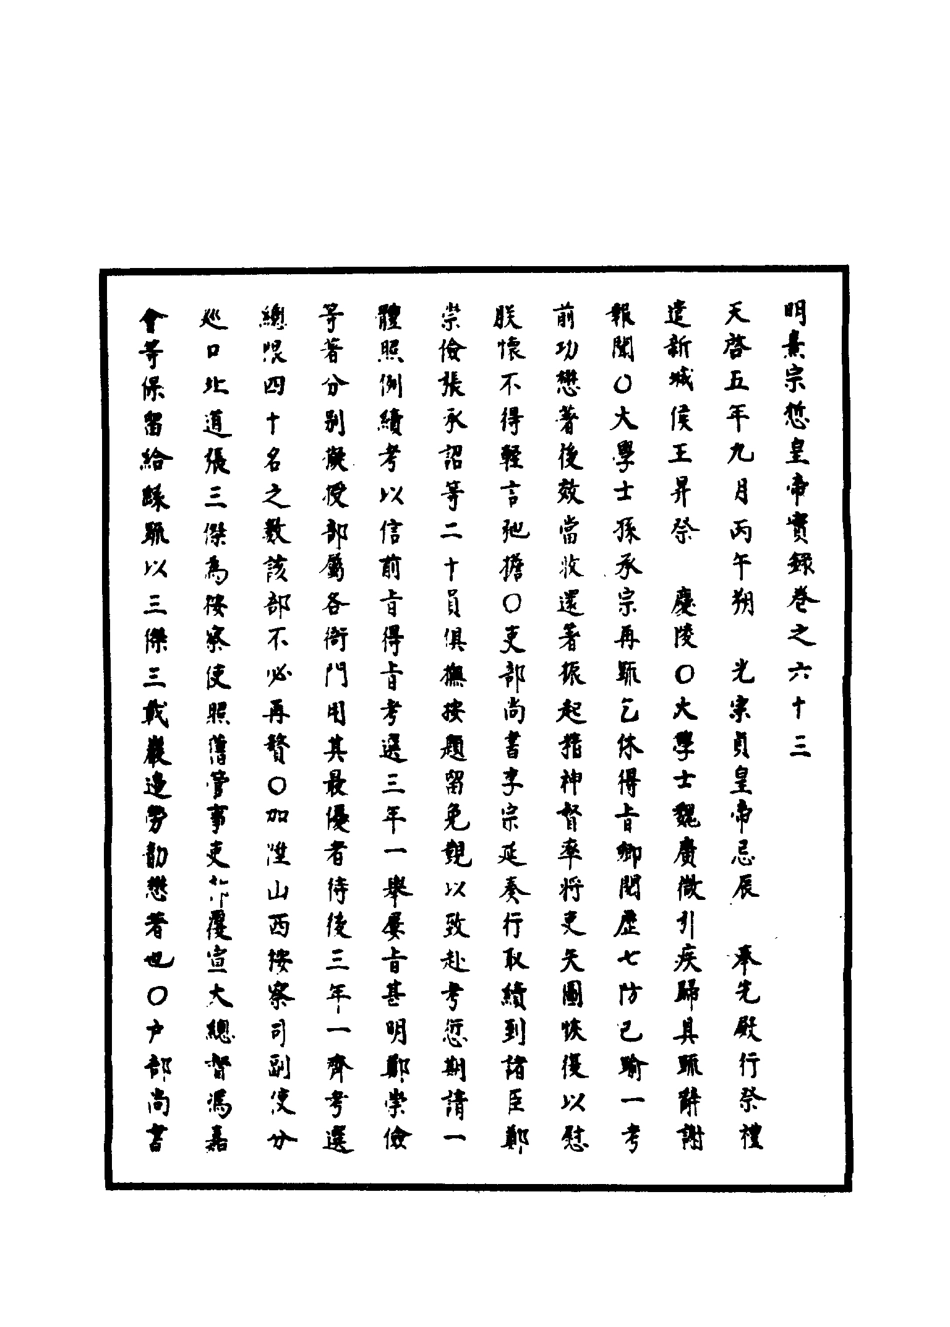 明熹宗悊皇帝實錄卷之六十三
天啓五年九月丙午朔　光宗貞皇帝忌辰　奉先殿行祭禮
遣新城侯王昇祭　慶陵○大學士魏廣微引疾歸具疏辭謝
報聞○大學士孫承宗再疏乞休得旨卿閱歷七防已踰一考
前功懋著後效當收還著振起精神督率將吏矢圖恢復以慰
朕懷不得輕言弛擔○吏部尚書李宗延奏行取續到諸臣鄭
崇儉張承詔等二十員俱撫按題留免覲以致赴考愆期請一
體照例續考以信前旨得旨考選三年一舉屢旨甚明鄭崇儉
等著分別擬授部屬各衙門用其最優者待後三年一齊考選
總限四十名之數該部不必再瀆○加陞山西按察司副使分
巡口北道張三傑為按察使照舊管事吏部覆宣大總督馮嘉
會等保留給繇疏以三傑三載巖邊勞勩懋著也○戶部尚書